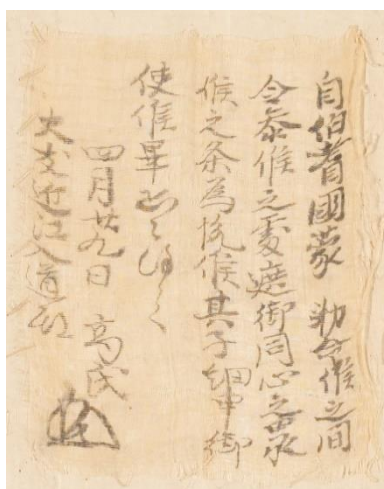 自伯耆國蒙 勅命候之間
令参候之處遮御同心之由承
候之条為悦候其子細申御
使候畢恐々謹言
四月廿九日 高氏
大友近江入道殿